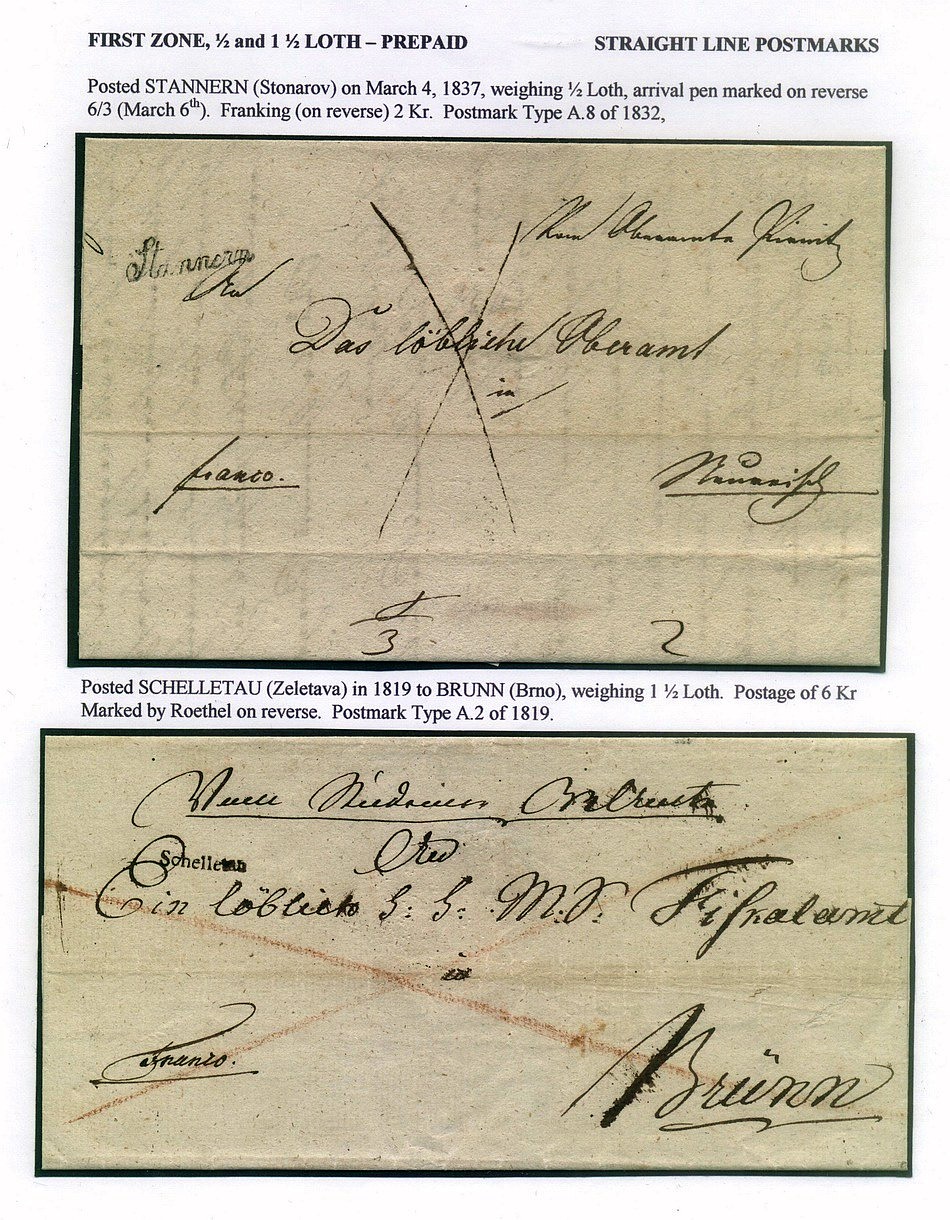 FIRST ZONE, ½ and 1 ½ LOTH – PREPAID
STRAIGHT LINE POSTMARKS
Posted STANNERN (Stonarov) on March 4, 1837, weighing ½ Loth, arrival pen marked on reverse
6/3 (March 6th). Franking (on reverse) 2 Kr. Postmark Type A.8 of 1832,
Stannern
An
Das löbliche Oberamt
in
franco.
3
2
Posted SCHELLETAU (Zeletava) in 1819 to BRUNN (Brno), weighing 1 ½ Loth. Postage of 6 Kr
Marked by Roethel on reverse. Postmark Type A.2 of 1819.
Schelletau
An
Ein löblich k: k: M.S. Fiskalamt
in
Franco.
Brünn